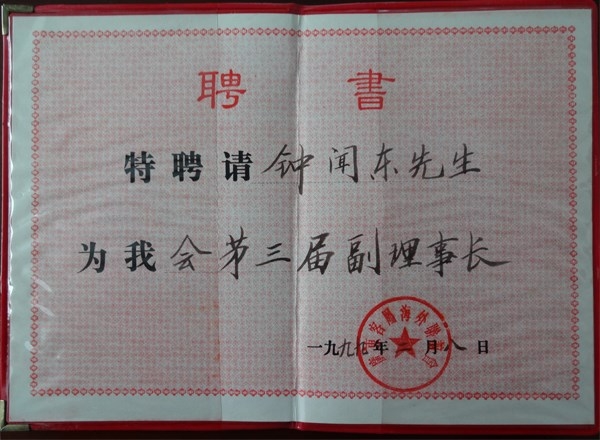 聘書
特聘请钟闻东先生
为我会第三届副理事长
一九九九年二月八日